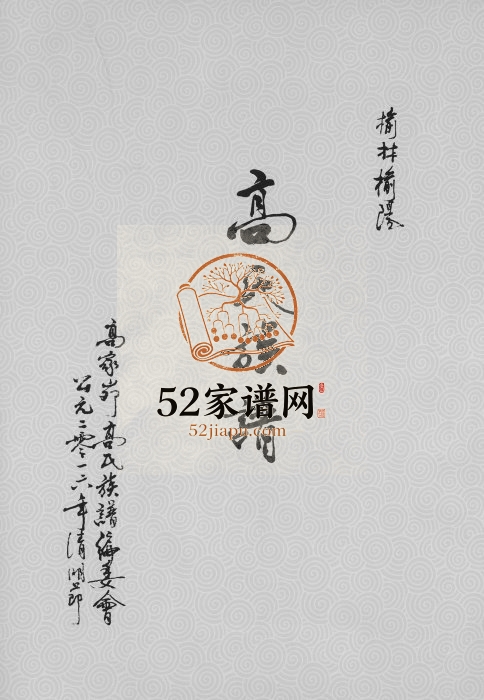 榆林榆陽
高氏族譜
高家峁高氏族譜編委會
公元二零一六年清明節
52家谱网
52jiapu.com